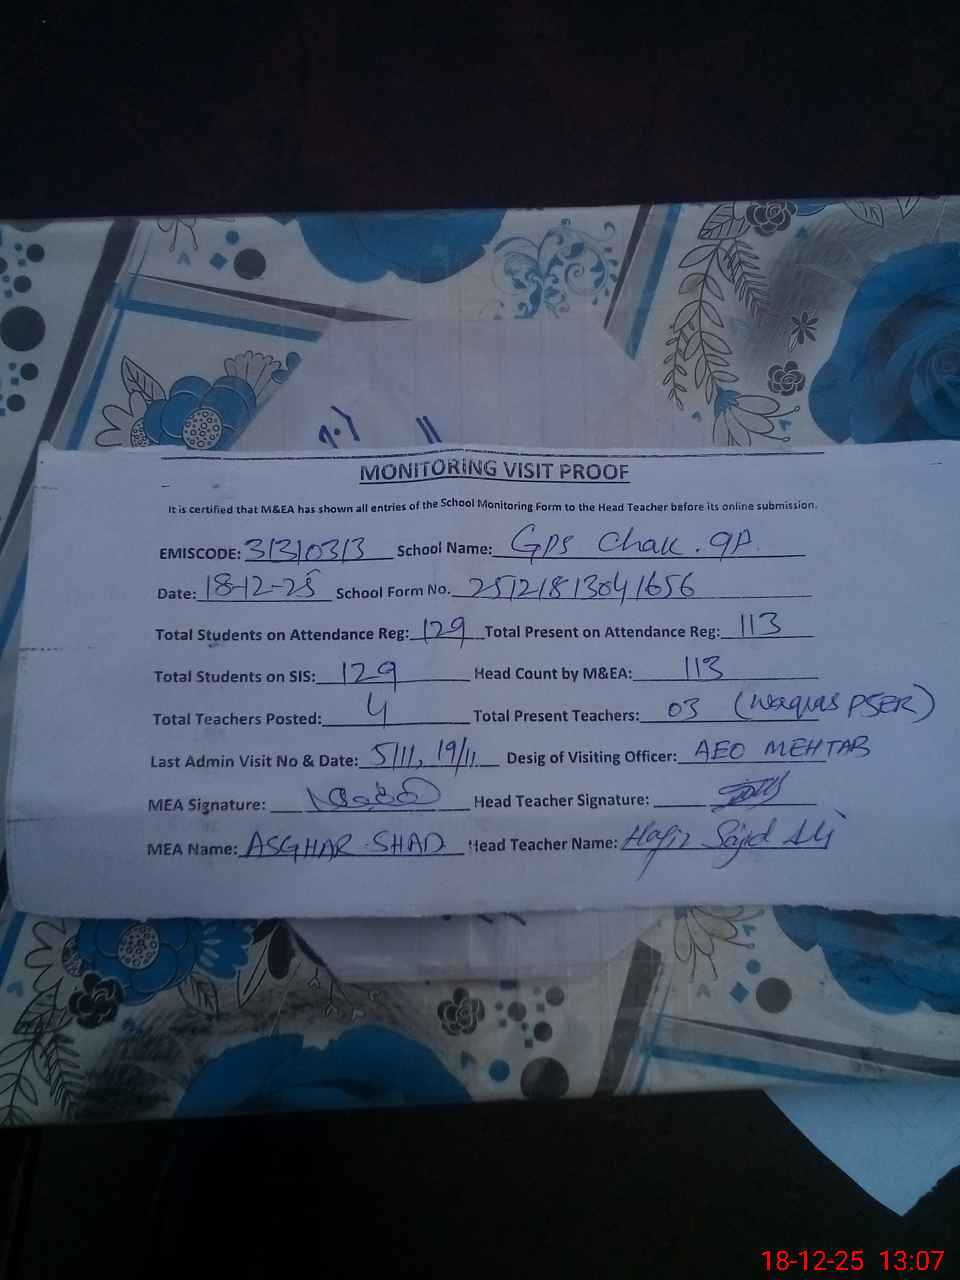 MONITORING VISIT PROOF
It is certified that M&EA has shown all entries of the School Monitoring Form to the Head Teacher before its online submission.
EMISCODE: 31310313 School Name: GPS Chak. 9P
Date: 18-12-25 School Form No. 25121813041656
Total Students on Attendance Reg: 129 Total Present on Attendance Reg: 113
Total Students on SIS: 129 Head Count by M&EA: 113
Total Teachers Posted: 4 Total Present Teachers: 03 (Waqas PSER)
Last Admin Visit No & Date: 5/11, 19/11 Desig of Visiting Officer: AEO MEHTAB
MEA Signature: Head Teacher Signature:
MEA Name: ASGHAR SHAD Head Teacher Name: Hafiz Sajid Ali
18-12-25 13:07